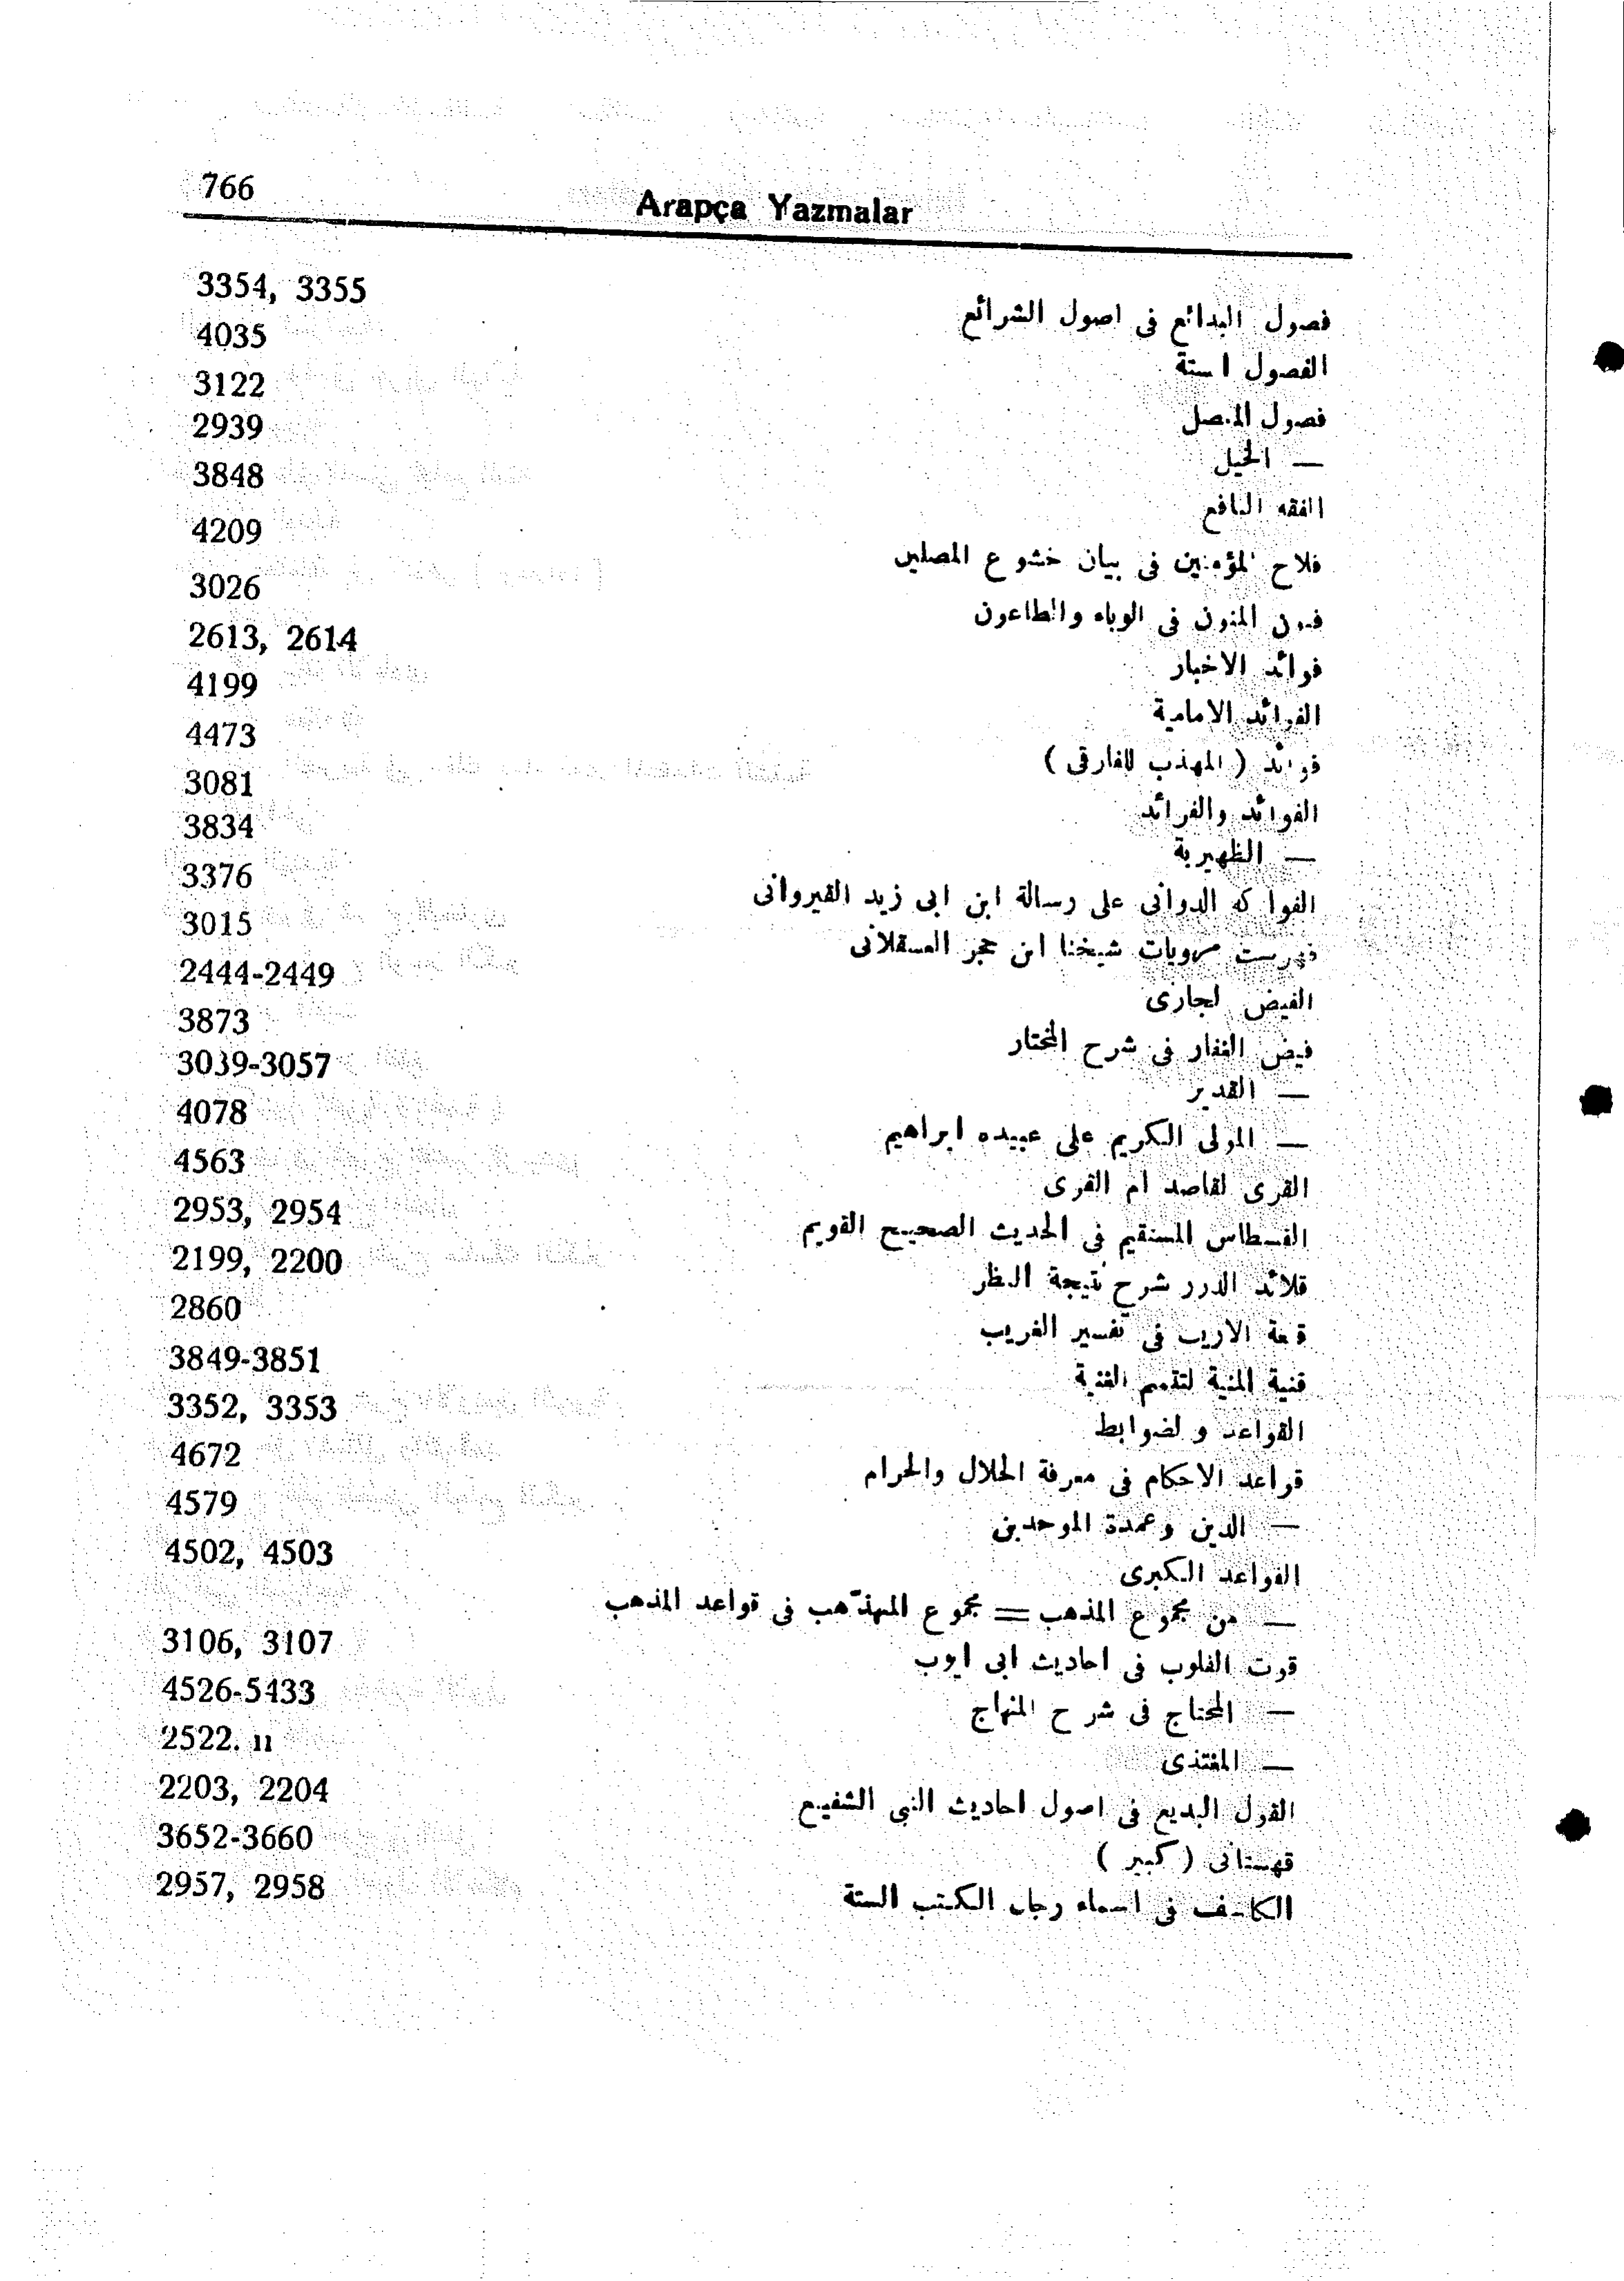 766 Arapça Yazmalar
فصول البدائع فى اصول الشرائع 3354, 3355
الفصول الستة 4035
فصول 3122
— الحيل 2939
الفقه النافع 3848
فلاح المؤمنين فى بيان خشوع المصلين 4209
فنون المنون فى الوباء والطاعون 3026
فوائد الاخبار 2613, 2614
الفوائد الامامية 4199
فوائد ( المهذب للفارقى ) 4473
الفوائد والفرائد 3081
— الظهيرية 3834
الفواكه الدوانى على رسالة ابن ابى زيد القيروانى 3376
فهرست مرويات شيخنا ابن حجر العسقلانى 3015
الفيض الجارى 2444-2449
فيض الغفار فى شرح المختار 3873
— القدير 3039-3057
— المولى الكريم على عبيده ابراهيم 4078
القرى لقاصد ام القرى 4563
القسطاس المستقيم فى الحديث الصحيح القويم 2953, 2954
قلائد الدرر شرح نتيجة النظر 2199, 2200
قمعة الاريب فى تفسير الغريب 2860
قنية المنية لتتميم الغنية 3849-3851
القواعد والضوابط 3352, 3353
قواعد الاحكام فى معرفة الحلال والحرام 4672
— الدين وعمدة الموحدين 4579
القواعد الكبرى 4502, 4503
— من مجموع المذهب = مجموع المهذّهب فى قواعد المذهب
قوت القلوب فى احاديث ابى ايوب 3106, 3107
— المحتاج فى شرح المنهاج 4526-5433
— المغتذى 2522. 11
القول البديع فى اصول احاديث النبى الشفيع 2203, 2204
قهستانى ( كبير ) 3652-3660
الكاشف فى اسماء رجال الكتب الستة 2957, 2958